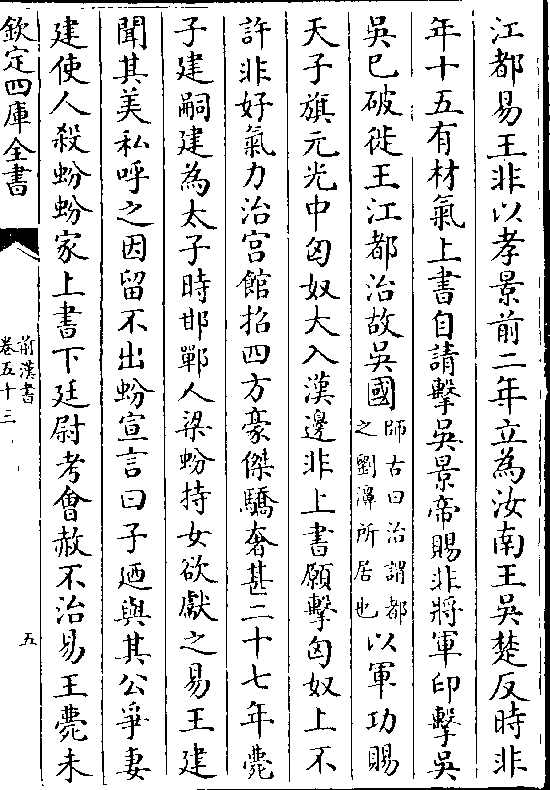 江都易王非以孝景前二年立為汝南王吳楚反時非
年十五有材氣上書自請擊吳景帝賜非將軍印擊吳
吳已破徙王江都治故吳國師古曰治謂都之劉濞所居也以軍功賜
天子旗元光中匈奴大入漢邊非上書願擊匈奴上不
許非好氣力治宮館招四方豪傑驕奢甚二十七年薨
子建嗣建為太子時邯鄲人梁蚡持女欲獻之易王建
聞其美私呼之因留不出蚡宣言曰子廼與其公爭妻
建使人殺蚡蚡家上書下廷尉考會赦不治易王薨未
欽定四庫全書
前漢書
卷五十三
五